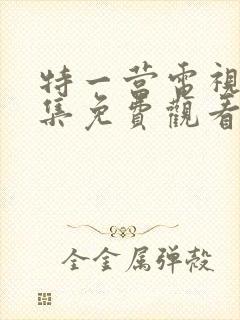 特一营電視
集免費觀看
全金属弹殻